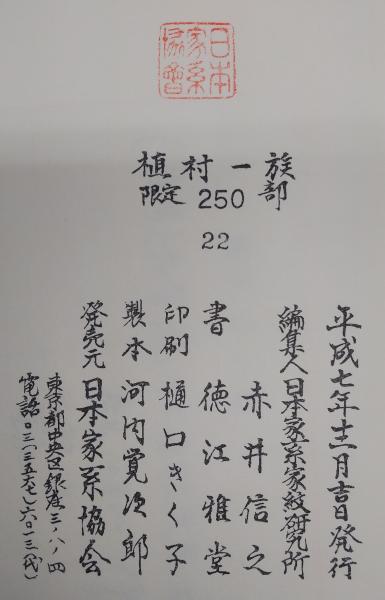 日本
家系
協會
植村一族
限定250部
22
平成七年十二月吉日発行
編集人日本家系家紋研究所
赤井信之
書 徳江雅堂
印刷 樋口きく子
製本 河内覚次郎
発売元 日本家系協会
東京都中央区銀座三ノ八ノ四
電話〇三(三五六七)六〇一三(代)